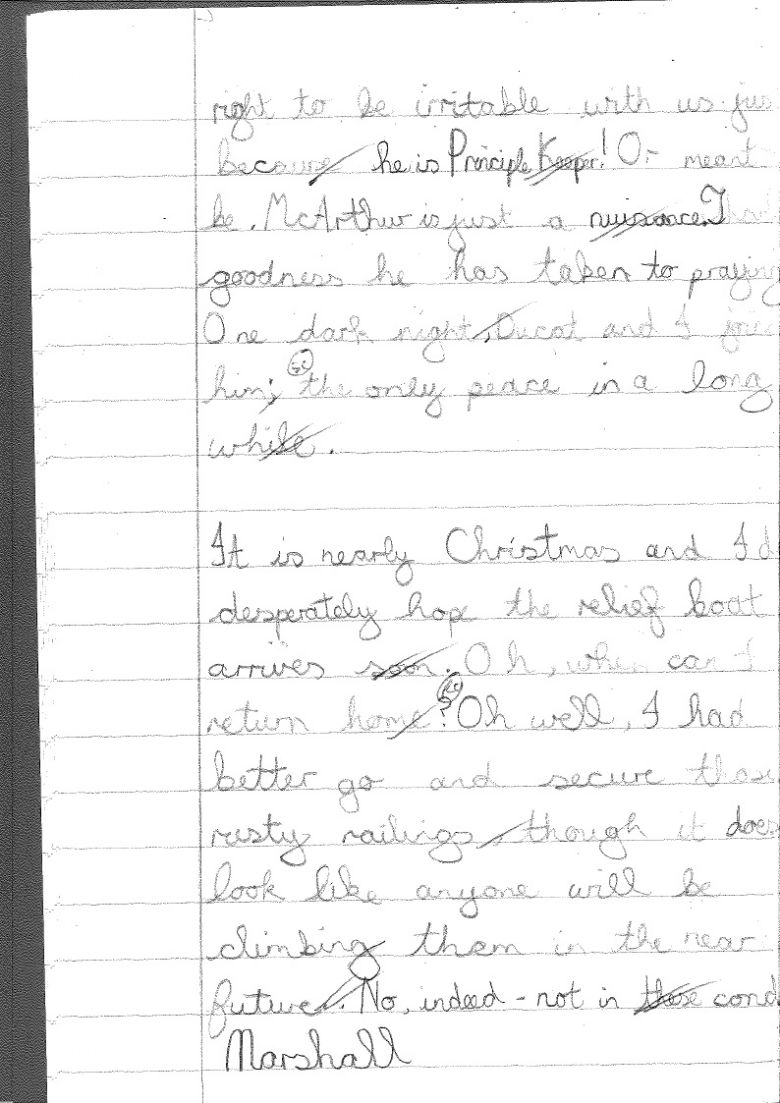 right to be irritable with us jus
because he is Principle Keeper! Or meant
be. McArthur is just a nuisance. Tha
goodness he has taken to praying
One dark night, Ducat and I joi
him; the only peace in a long
while.
It is nearly Christmas and I d
desperately hope the relief boat
arrives soon. Oh, when can I
return home? Oh well, I had
better go and secure thos
rusty railings, though it does
look like anyone will be
climbing them in the near
future. No, indeed - not in these cond
Marshall